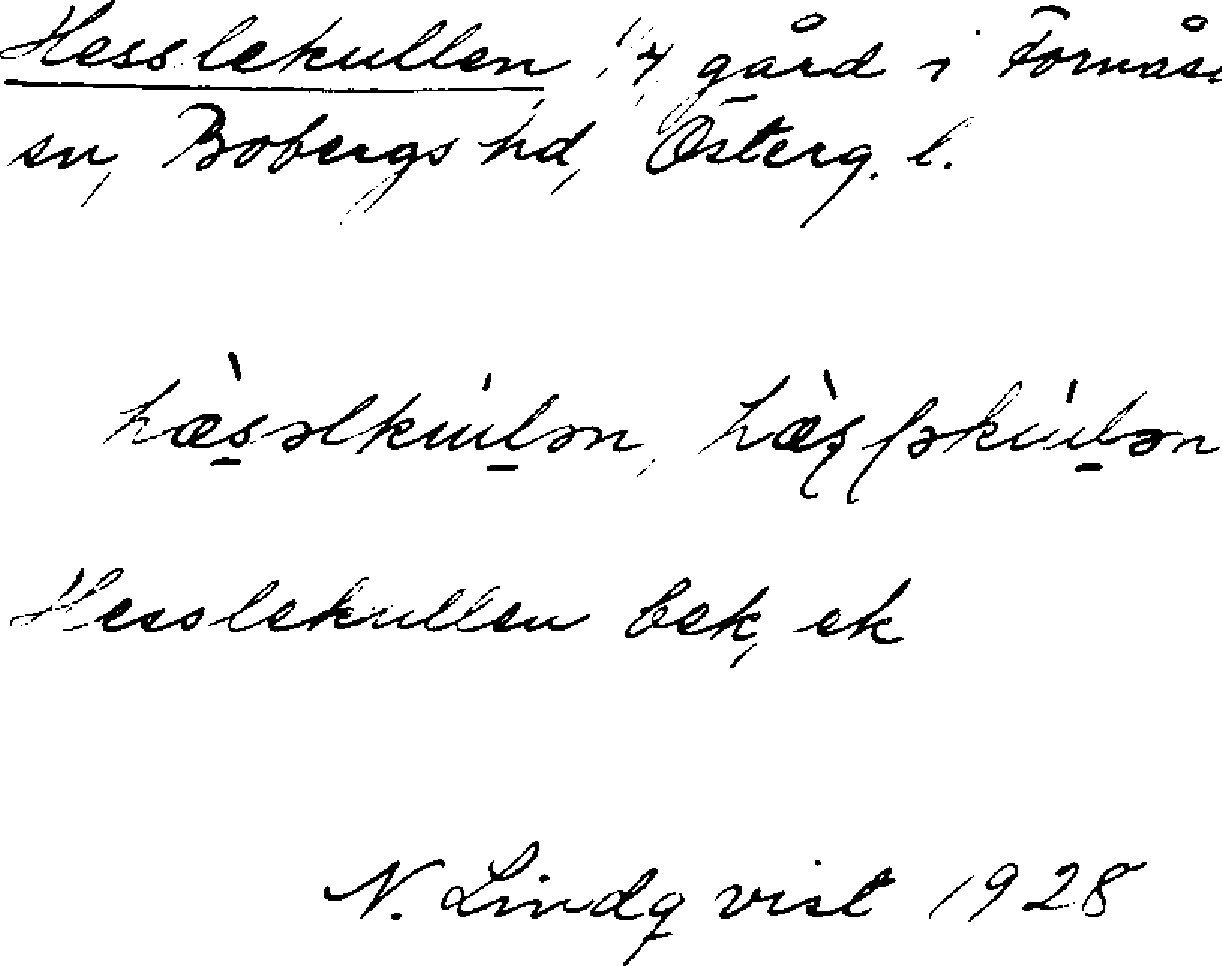 Hesslekullen 1/4 gård i Fornåsa
sn, Bobergs hd, Österg. l.
hæ̀səlkùlən, hæ̀ʂɭəkùlən
Hesslekullen bek, ek
N. Lindqvist 1928